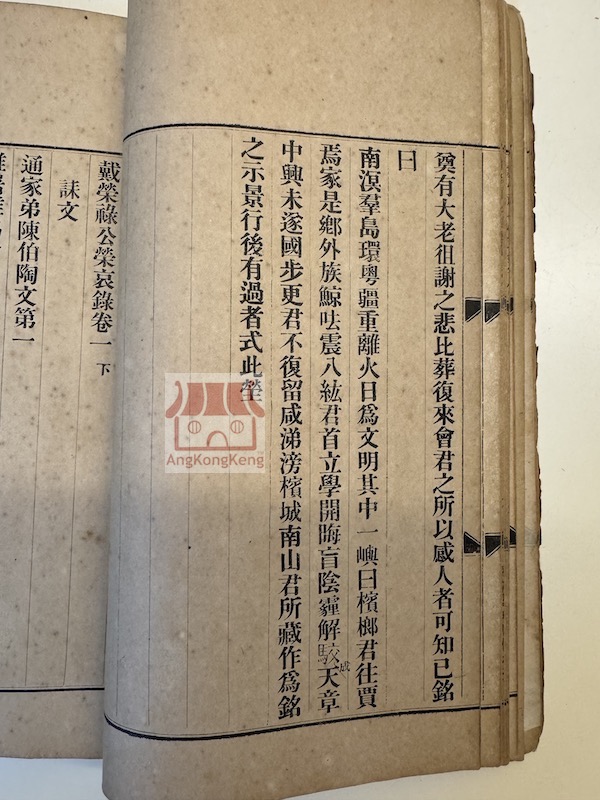 奠有大老徂謝之悲比葬復來會君之所以感人者可知已銘
曰
南溟羣島環粵疆重離火日爲文明其中一嶼曰檳榔君往賈
焉家是鄉外族鯨呿震八紘君首立學開晦盲陰霾解駮天章
成
中興未遂國步更君不復留咸涕滂檳城南山君所藏作爲銘
之示景行後有過者式此塋
戴榮祿公榮哀錄卷一 下
誄文
通家弟陳伯陶文第一
AngKongKeng